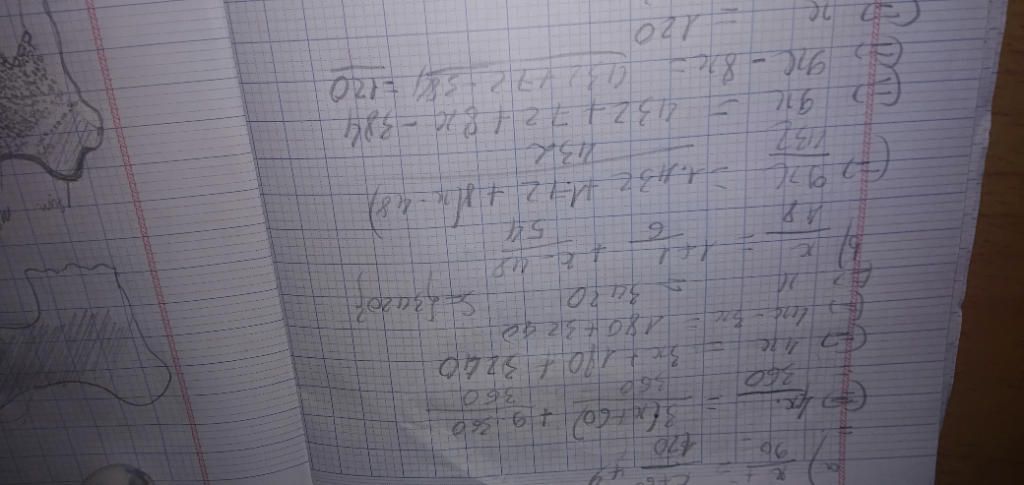 a) x/90 = x+60/120 + 9
(=) 4x/360 = 3(x+60)/360 + 9·360/360
(=) 4x = 3x + 180 + 3240
(=) 4x - 3x = 180 + 3240
(=) x = 3420 S={3420}
b) x/48 = 1 + 1/6 + x-48/54
(=) 9x/432 = 1·432 + 1·72 + 8(x-48)/432
(=) 9x = 432 + 72 + 8x - 384
(=) 9x - 8x = 432 + 72 - 384 = 120
(=) x = 120